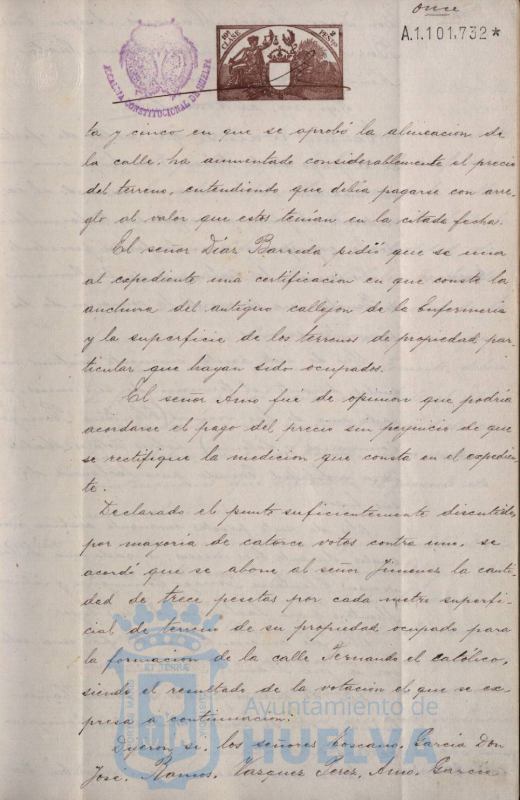 once
A.1.101.732*
ALCALDIA CONSTITUCIONAL DE HUELVA
10ª CLASE
2 PESETAS
ta y cinco en que se aprobó la alineacion de
la calle, ha aumentado considerablemente el precio
del terreno, entendiendo que debia pagarse con arre-
glo al valor que estos tenian en la citada fecha.
El señor Diaz Barreda pidió que se una
al expediente una certificacion en que conste la
anchura del antiguo callejon de la Enfermeria
y la superficie de los terrenos de propiedad par-
ticular que hayan sido ocupados.
El señor Amo fué de opinion que podria
acordarse el pago del precio sin perjuicio de que
se rectifique la medicion que consta en el expedien-
te.
Declarado el punto suficientemente discutido,
por mayoria de catorce votos contra uno, se
acordó que se abone al señor Jimenez la canti-
dad de trece pesetas por cada metro superfi-
cial de terreno de su propiedad, ocupado para
la formacion de la calle Fernando el católico,
siendo el resultado de la votacion el que se ex-
presa a continuacion:
Dijeron si, los señores Toscano, Garcia Don
José, Ramos, Vazquez Perez, Amo, Garcia
Ayuntamiento de
HUELVA